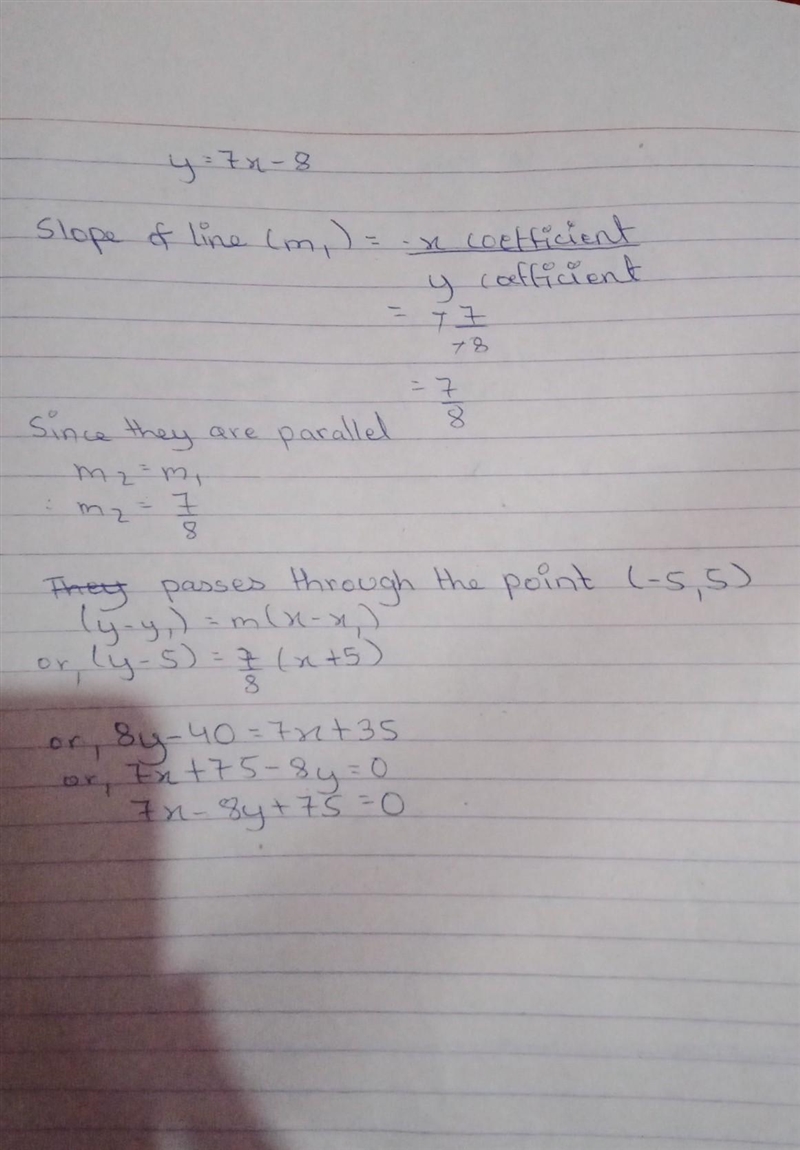 y = 7x - 8
Slope of line (m₁) = -x coefficient / y coefficient
= +7/+8
= 7/8
Since they are parallel
m₂ = m₁
∴ m₂ = 7/8
They passes through the point (-5,5)
(y-y₁) = m(x-x₁)
or, (y-5) = 7/8 (x+5)
or, 8y-40 = 7x+35
or, 7x+75-8y=0
7x-8y+75=0